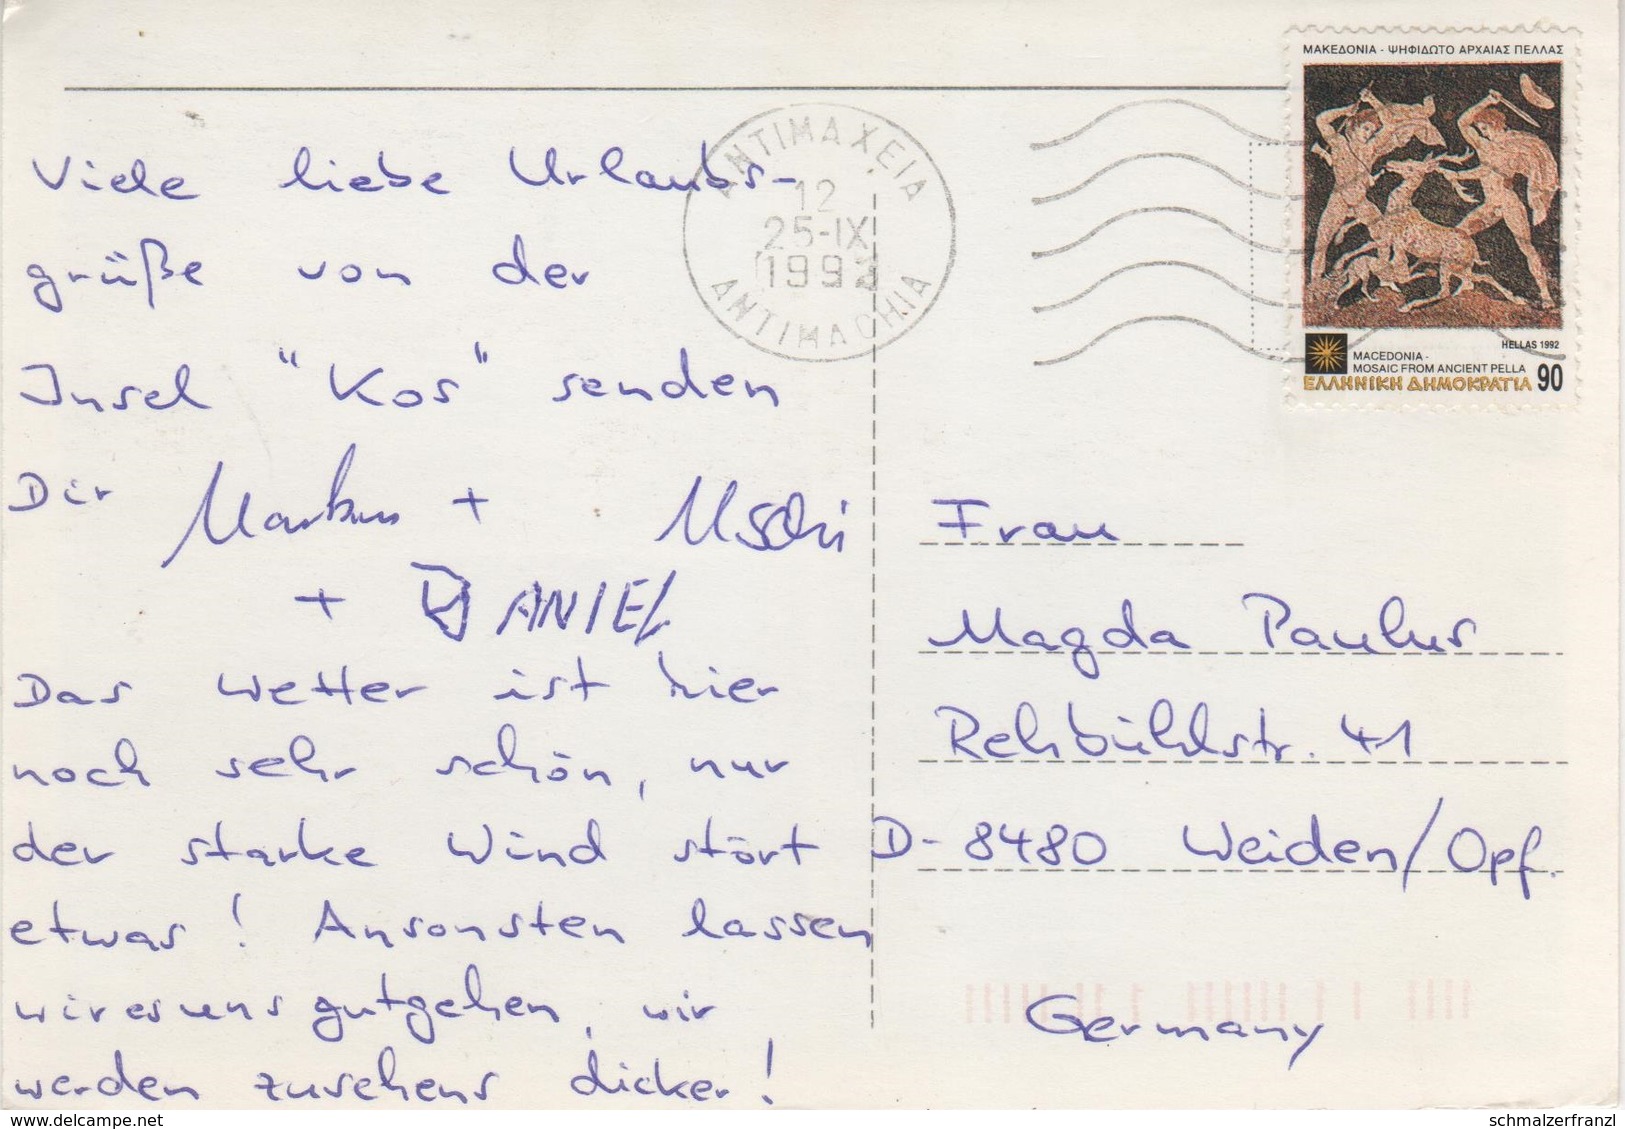 Viele liebe Urlaubs-
grüße von der
Insel "Kos" senden
Dir Markus + Uschi
+ DANIEL
Das Wetter ist hier
noch sehr schön, nur
der starke Wind stört
etwas! Ansonsten lassen
wir es uns gutgehen, wir
werden zusehens dicker!
ΑΝΤΙΜΑΧΕΙΑ
12
25-IX
1992
ANTIMACHIA
ΜΑΚΕΔΟΝΙΑ - ΨΗΦΙΔΩΤΟ ΑΡΧΑΙΑΣ ΠΕΛΛΑΣ
HELLAS 1992
MACEDONIA -
MOSAIC FROM ANCIENT PELLA
ΕΛΛΗΝΙΚΗ ΔΗΜΟΚΡΑΤΙΑ 90
Frau
Magda Paulus
Rehbühlstr. 41
D-8480 Weiden/Opf.
Germany
www.delcampe.net
schmalzerfranzl